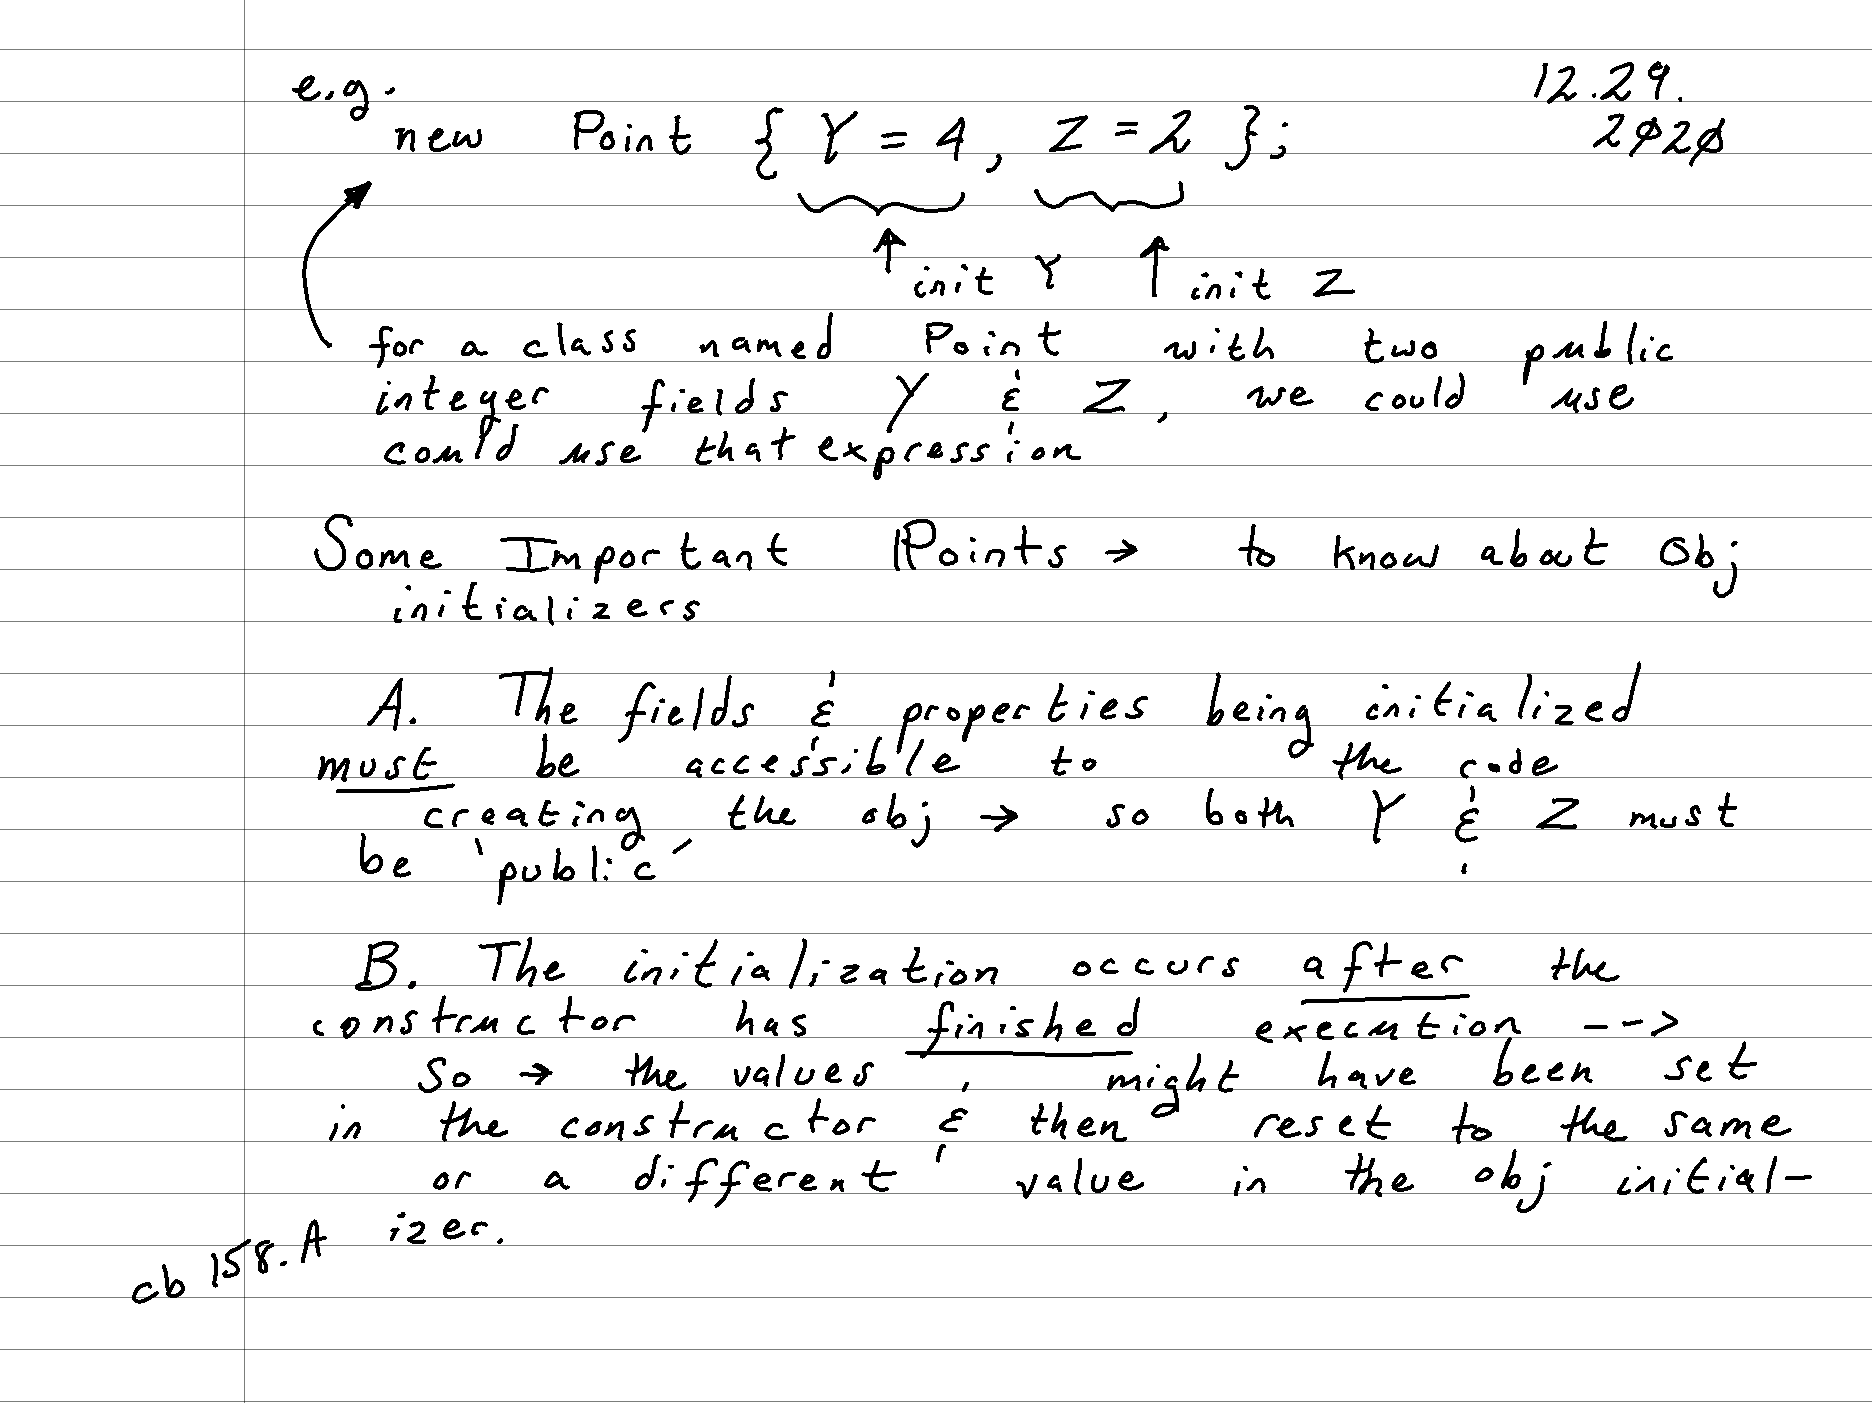 e.g. 12.29.
new Point { Y = 4, Z = 2 }; 2020
init Y init Z
for a class named Point with two public
integer fields Y & Z, we could use
could use that expression
Some Important Points → to know about Obj
initializers
A. The fields & properties being initialized
must be accessible to the code
creating the obj → so both Y & Z must
be 'public'
B. The initialization occurs after the
constructor has finished execution -->
So → the values might have been set
in the constructor & then reset to the same
or a different value in the obj initial-
izer.
cb 158.A